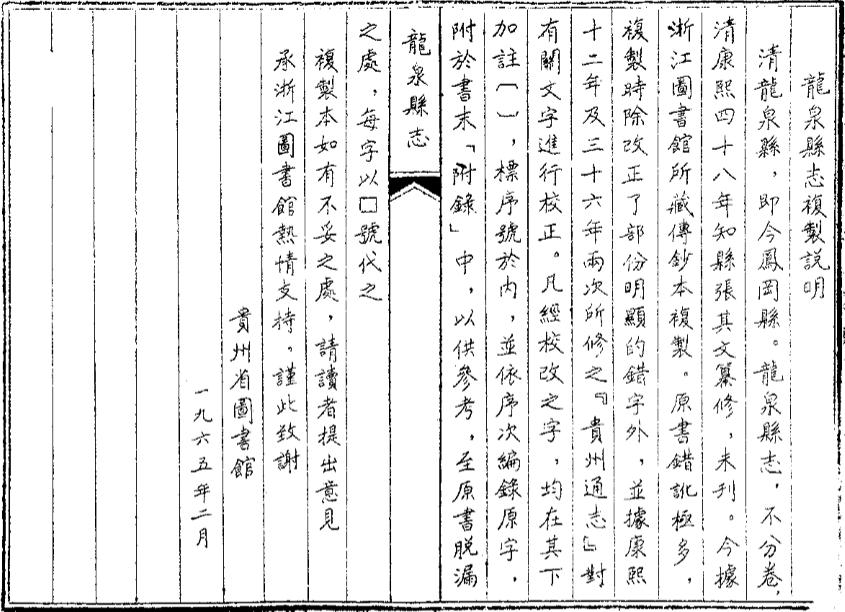 龍泉縣志複製説明
清龍泉縣，即今鳳岡縣。龍泉縣志，不分卷，
清康熙四十八年知縣張其文纂修，未刊。今據
浙江圖書館所藏傳鈔本複製。原書錯訛極多，
複製時除改正了部份明顯的錯字外，並據康熙
十二年及三十六年兩次所修之『貴州通志』對
有關文字進行校正。凡經校改之字，均在其下
加註〔〕，標序號於内，並依序次編錄原字，
附於書末「附錄」中，以供參考。至原書脱漏
龍泉縣志
之處，每字以囗號代之
複製本如有不妥之處，請讀者提出意見
承浙江圖書館熱情支持。謹此致謝
貴州省圖書館
一九六五年二月